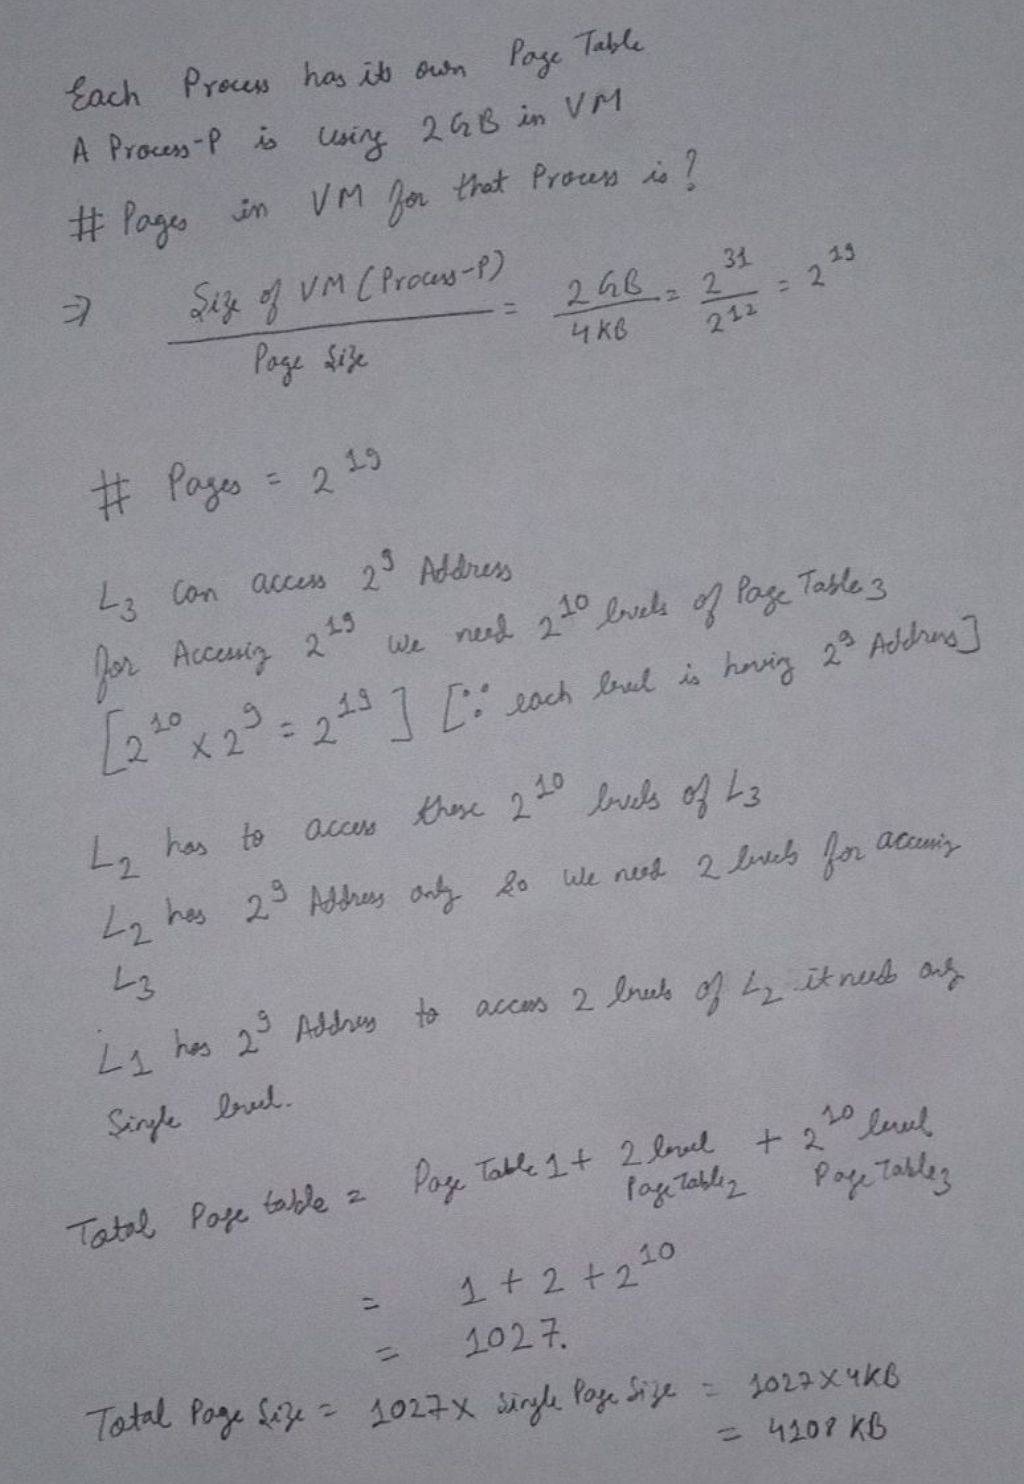 Each Process has its own Page Table
A Process-P is using 2GB in VM
# Pages in VM for that Process is?
⇒ Size of VM (Process-P) / Page Size = 2GB / 4KB = 2^31 / 2^12 = 2^19
# Pages = 2^19
L3 can access 2^9 Address
for Accessing 2^19 we need 2^10 levels of Page Table3
[2^10 x 2^9 = 2^19] [∵ each level is having 2^9 Address]
L2 has to access these 2^10 levels of L3
L2 has 2^9 Address only so we need 2 levels for accessing
L3
L1 has 2^9 Address to access 2 levels of L2 it needs only
Single level.
Total Page table = Page Table 1 + 2 level Page Table2 + 2^10 level Page Table3
= 1 + 2 + 2^10
= 1027.
Total Page Size = 1027 x Single Page Size = 1027 x 4KB
= 4108 KB